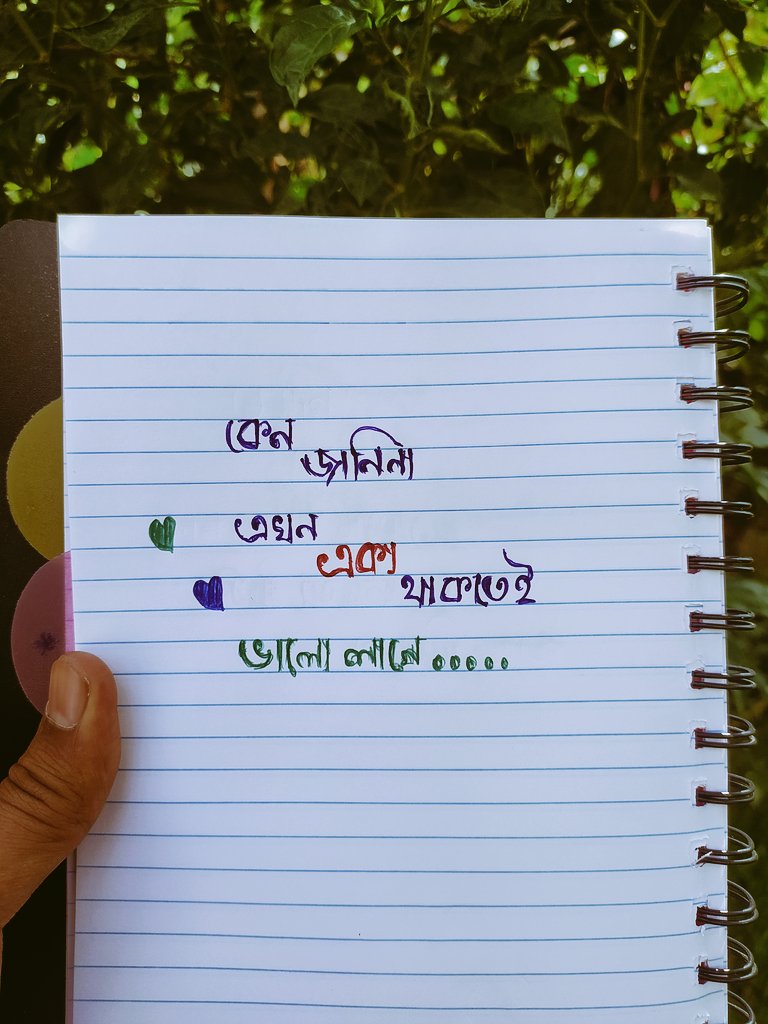 কেন জানিনা
এখন একা থাকতেই
ভালো লাগে.....